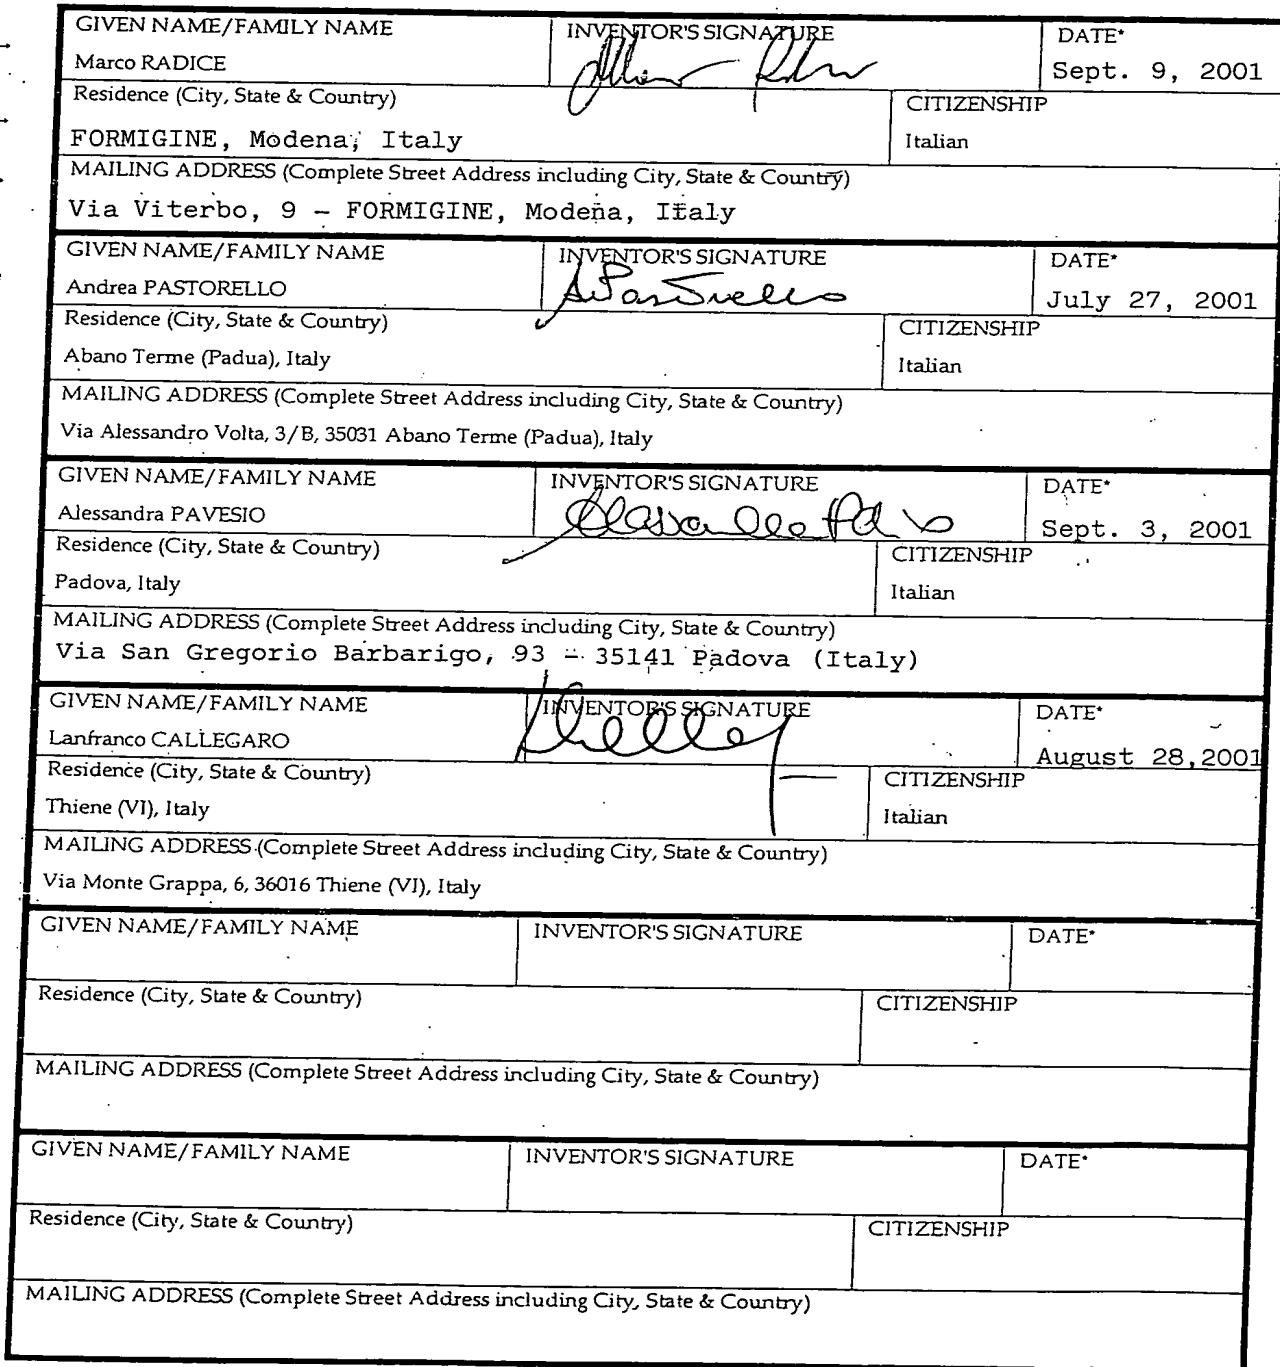 GIVEN NAME/FAMILY NAME INVENTOR'S SIGNATURE DATE*
Marco RADICE Sept. 9, 2001
Residence (City, State & Country) CITIZENSHIP
FORMIGINE, Modena, Italy Italian
MAILING ADDRESS (Complete Street Address including City, State & Country)
Via Viterbo, 9 - FORMIGINE, Modena, Italy
GIVEN NAME/FAMILY NAME INVENTOR'S SIGNATURE DATE*
Andrea PASTORELLO July 27, 2001
Residence (City, State & Country) CITIZENSHIP
Abano Terme (Padua), Italy Italian
MAILING ADDRESS (Complete Street Address including City, State & Country)
Via Alessandro Volta, 3/B, 35031 Abano Terme (Padua), Italy
GIVEN NAME/FAMILY NAME INVENTOR'S SIGNATURE DATE*
Alessandra PAVESIO Sept. 3, 2001
Residence (City, State & Country) CITIZENSHIP
Padova, Italy Italian
MAILING ADDRESS (Complete Street Address including City, State & Country)
Via San Gregorio Barbarigo, 93 - 35141 Padova (Italy)
GIVEN NAME/FAMILY NAME INVENTOR'S SIGNATURE DATE*
Lanfranco CALLEGARO August 28,2001
Residence (City, State & Country) CITIZENSHIP
Thiene (VI), Italy Italian
MAILING ADDRESS (Complete Street Address including City, State & Country)
Via Monte Grappa, 6, 36016 Thiene (VI), Italy
GIVEN NAME/FAMILY NAME INVENTOR'S SIGNATURE DATE*
Residence (City, State & Country) CITIZENSHIP
MAILING ADDRESS (Complete Street Address including City, State & Country)
GIVEN NAME/FAMILY NAME INVENTOR'S SIGNATURE DATE*
Residence (City, State & Country) CITIZENSHIP
MAILING ADDRESS (Complete Street Address including City, State & Country)